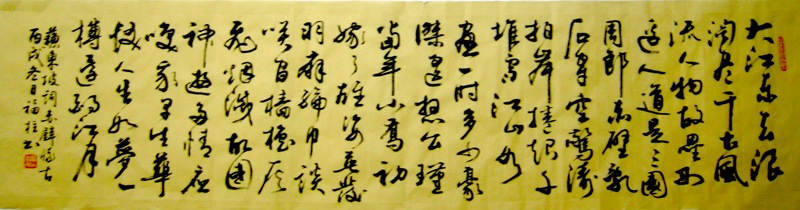 大江東去浪
淘尽千古風
流人物故壘西
邊人道是三國
周郎赤壁亂
石穿空驚濤
拍岸捲起千
堆雪江山如
畫一時多少豪
傑遥想公瑾
當年小喬初
嫁了雄姿英發
羽扇綸巾談
咲間檣櫓灰
飛烟滅故國
神遊多情應
咲我早生華
髮人生如夢一
樽還酹江月
蘇東坡詞赤壁懷古
丙戌叁月福柱書